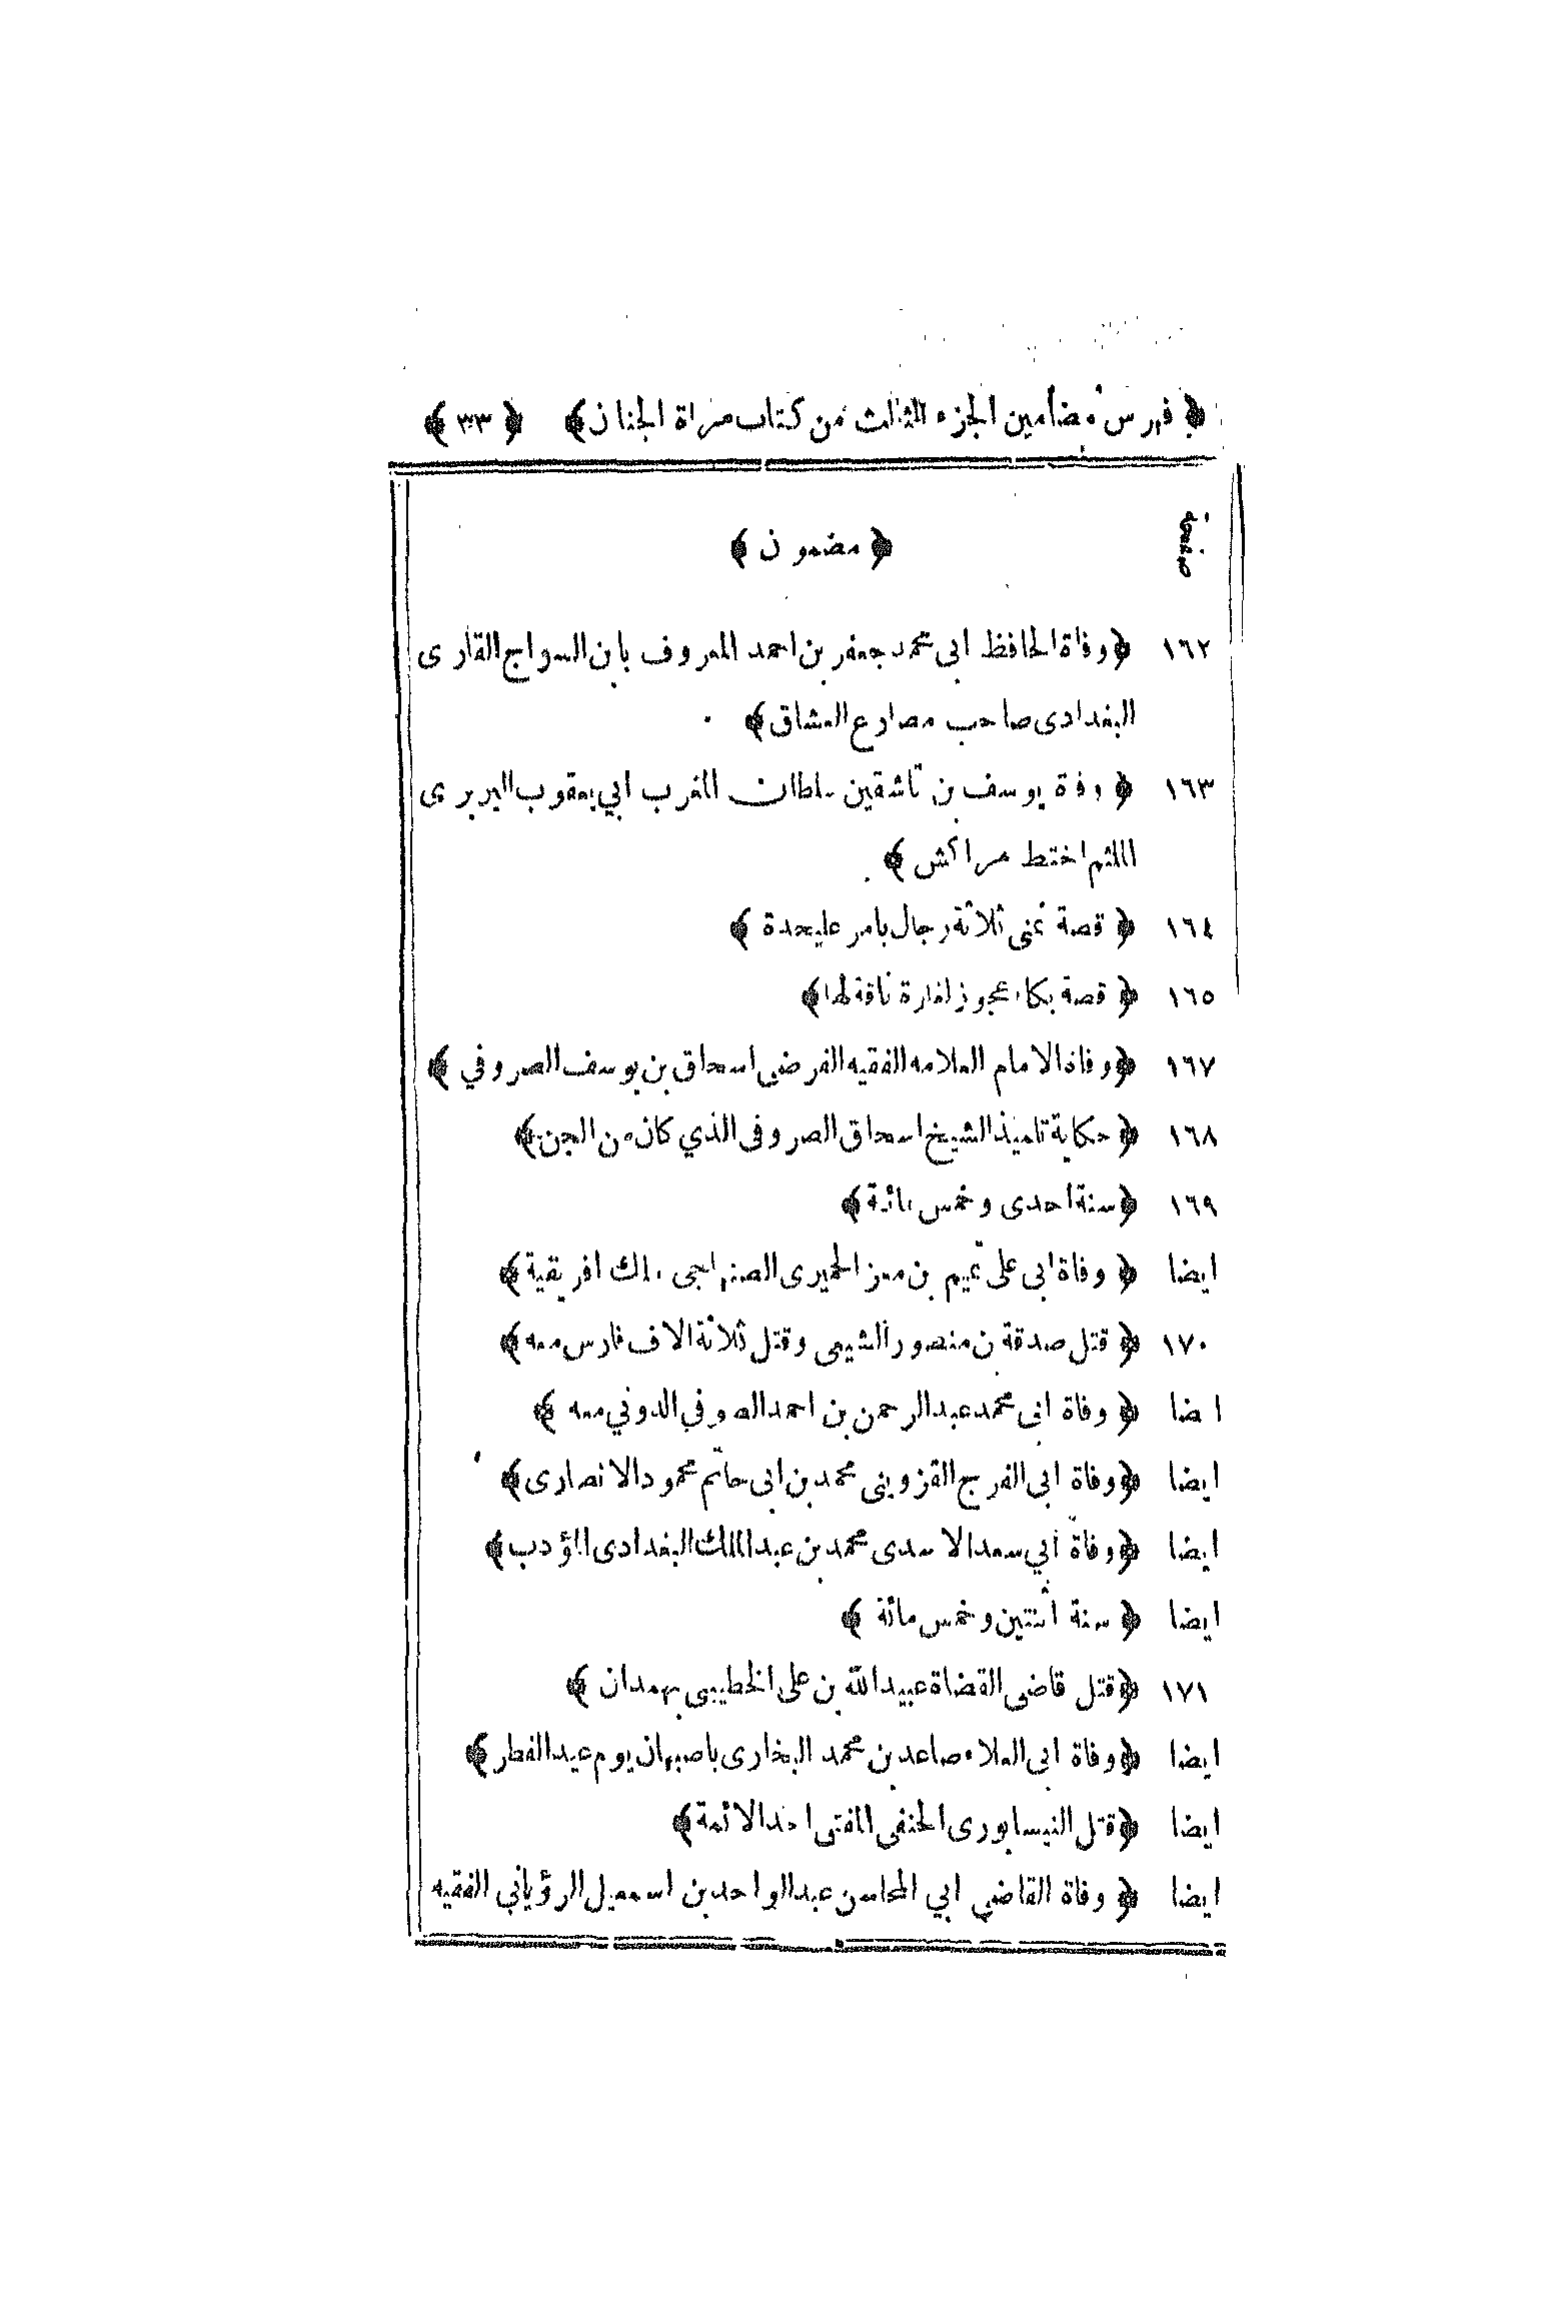 ﴿ فهرس مضامين الجزء الثالث من كتاب مراة الجنان ﴾ ﴿ ٣٣ ﴾
صفحة ﴿ مضمون ﴾
١٦٢ ﴿ وفاة الحافظ ابى محمد جعفر بن احمد المعروف بابن السواج القارى
البغدادى صاحب مصارع العشاق ﴾
١٦٣ ﴿ وفة يوسف بن تاشقين سلطان المغرب ابي يعقوب البربرى
الملثم اختط مراكش ﴾
١٦٤ ﴿ قصة تمنى ثلاثة رجال بامر عليحدة ﴾
١٦٥ ﴿ قصة بكاء عجوز لفارة ناقة لها ﴾
١٦٧ ﴿ وفاة الامام العلامه الفقيه الفرضى اسحاق بن يوسف الصروفي ﴾
١٦٨ ﴿ حكاية تلميذ الشيخ اسحاق الصروفى الذي كان من الجن ﴾
١٦٩ ﴿ سنة احدى وخمس مائة ﴾
ايضا ﴿ وفاة ابى على تميم بن معز الحميرى الصنهاجى ملك افريقية ﴾
١٧٠ ﴿ قتل صدقة بن منصور الشيعى وقتل ثلاثة الاف فارس معه ﴾
ايضا ﴿ وفاة ابى محمد عبد الرحمن بن احمد الصوفي الدوني معه ﴾
ايضا ﴿ وفاة ابى الفرج القزوينى محمد بن ابى حاتم محمود الانصارى ﴾
ايضا ﴿ وفاة ابي سعد الاسدى محمد بن عبد الملك البغدادى المؤدب ﴾
ايضا ﴿ سنة اثنتين وخمس مائة ﴾
١٧١ ﴿ قتل قاضى القضاة عبيد الله بن على الخطيبى بهمدان ﴾
ايضا ﴿ وفاة ابى العلاء صاعد بن محمد البخارى باصبهان يوم عيد الفطر ﴾
ايضا ﴿ قتل النيسابورى الحنفى المفتى احد الائمة ﴾
ايضا ﴿ وفاة القاضى ابي المحاسن عبد الواحد بن اسمعيل الرؤياني الفقيه